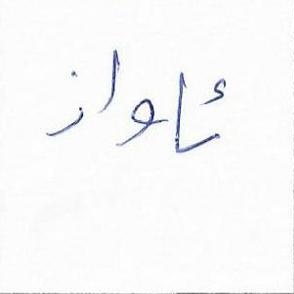 ئاواز